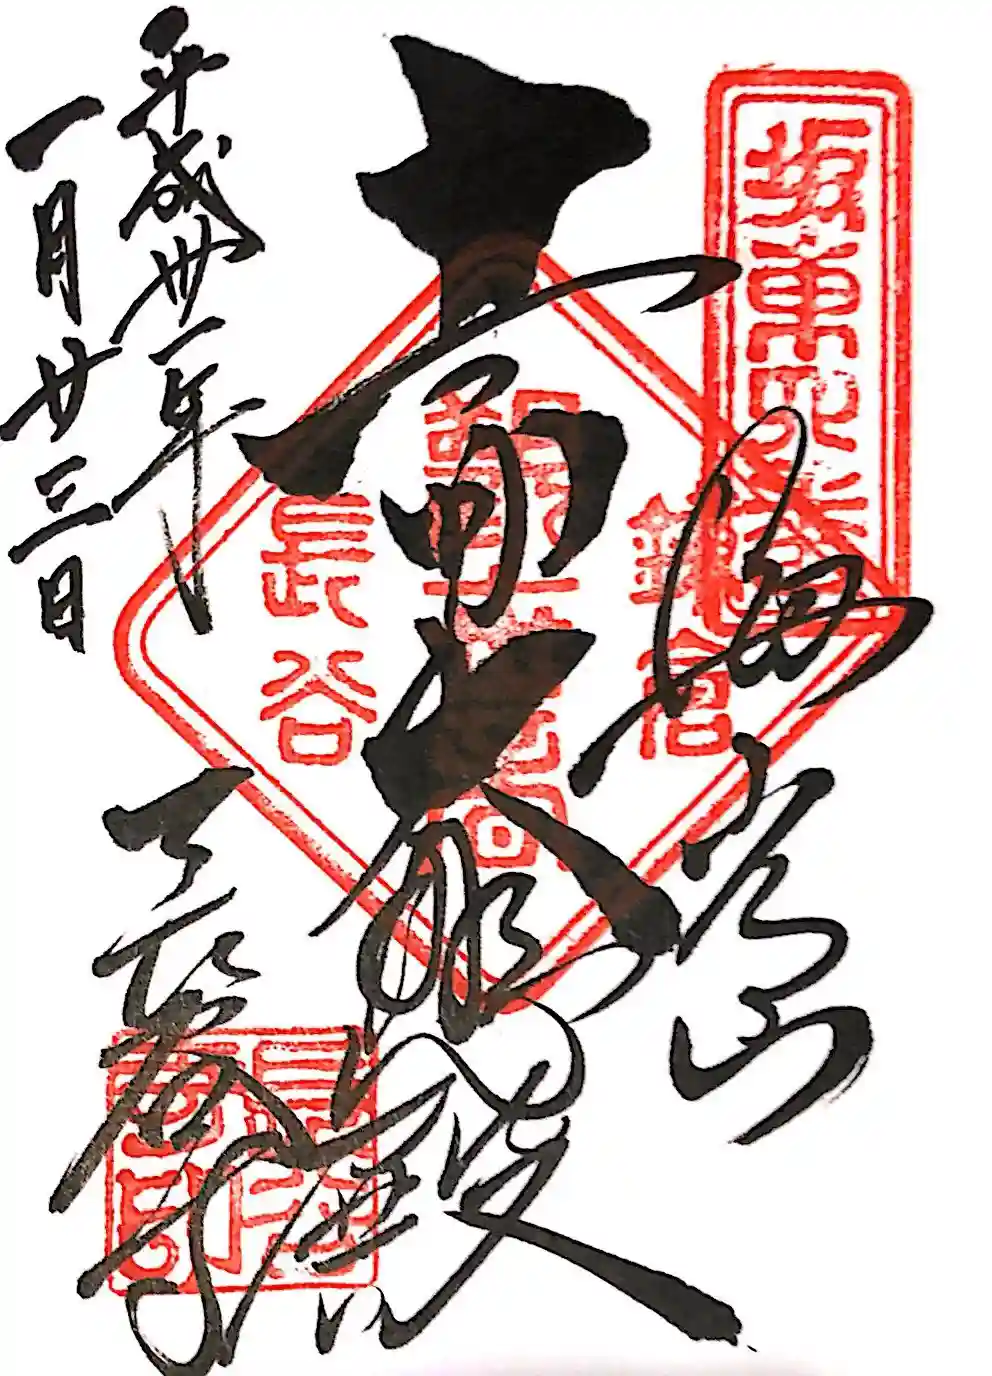 坂東四番
海光山
鎌倉
十一面大悲殿
長谷
長谷寺
長谷寺印
平成卅一年
一月廿三日